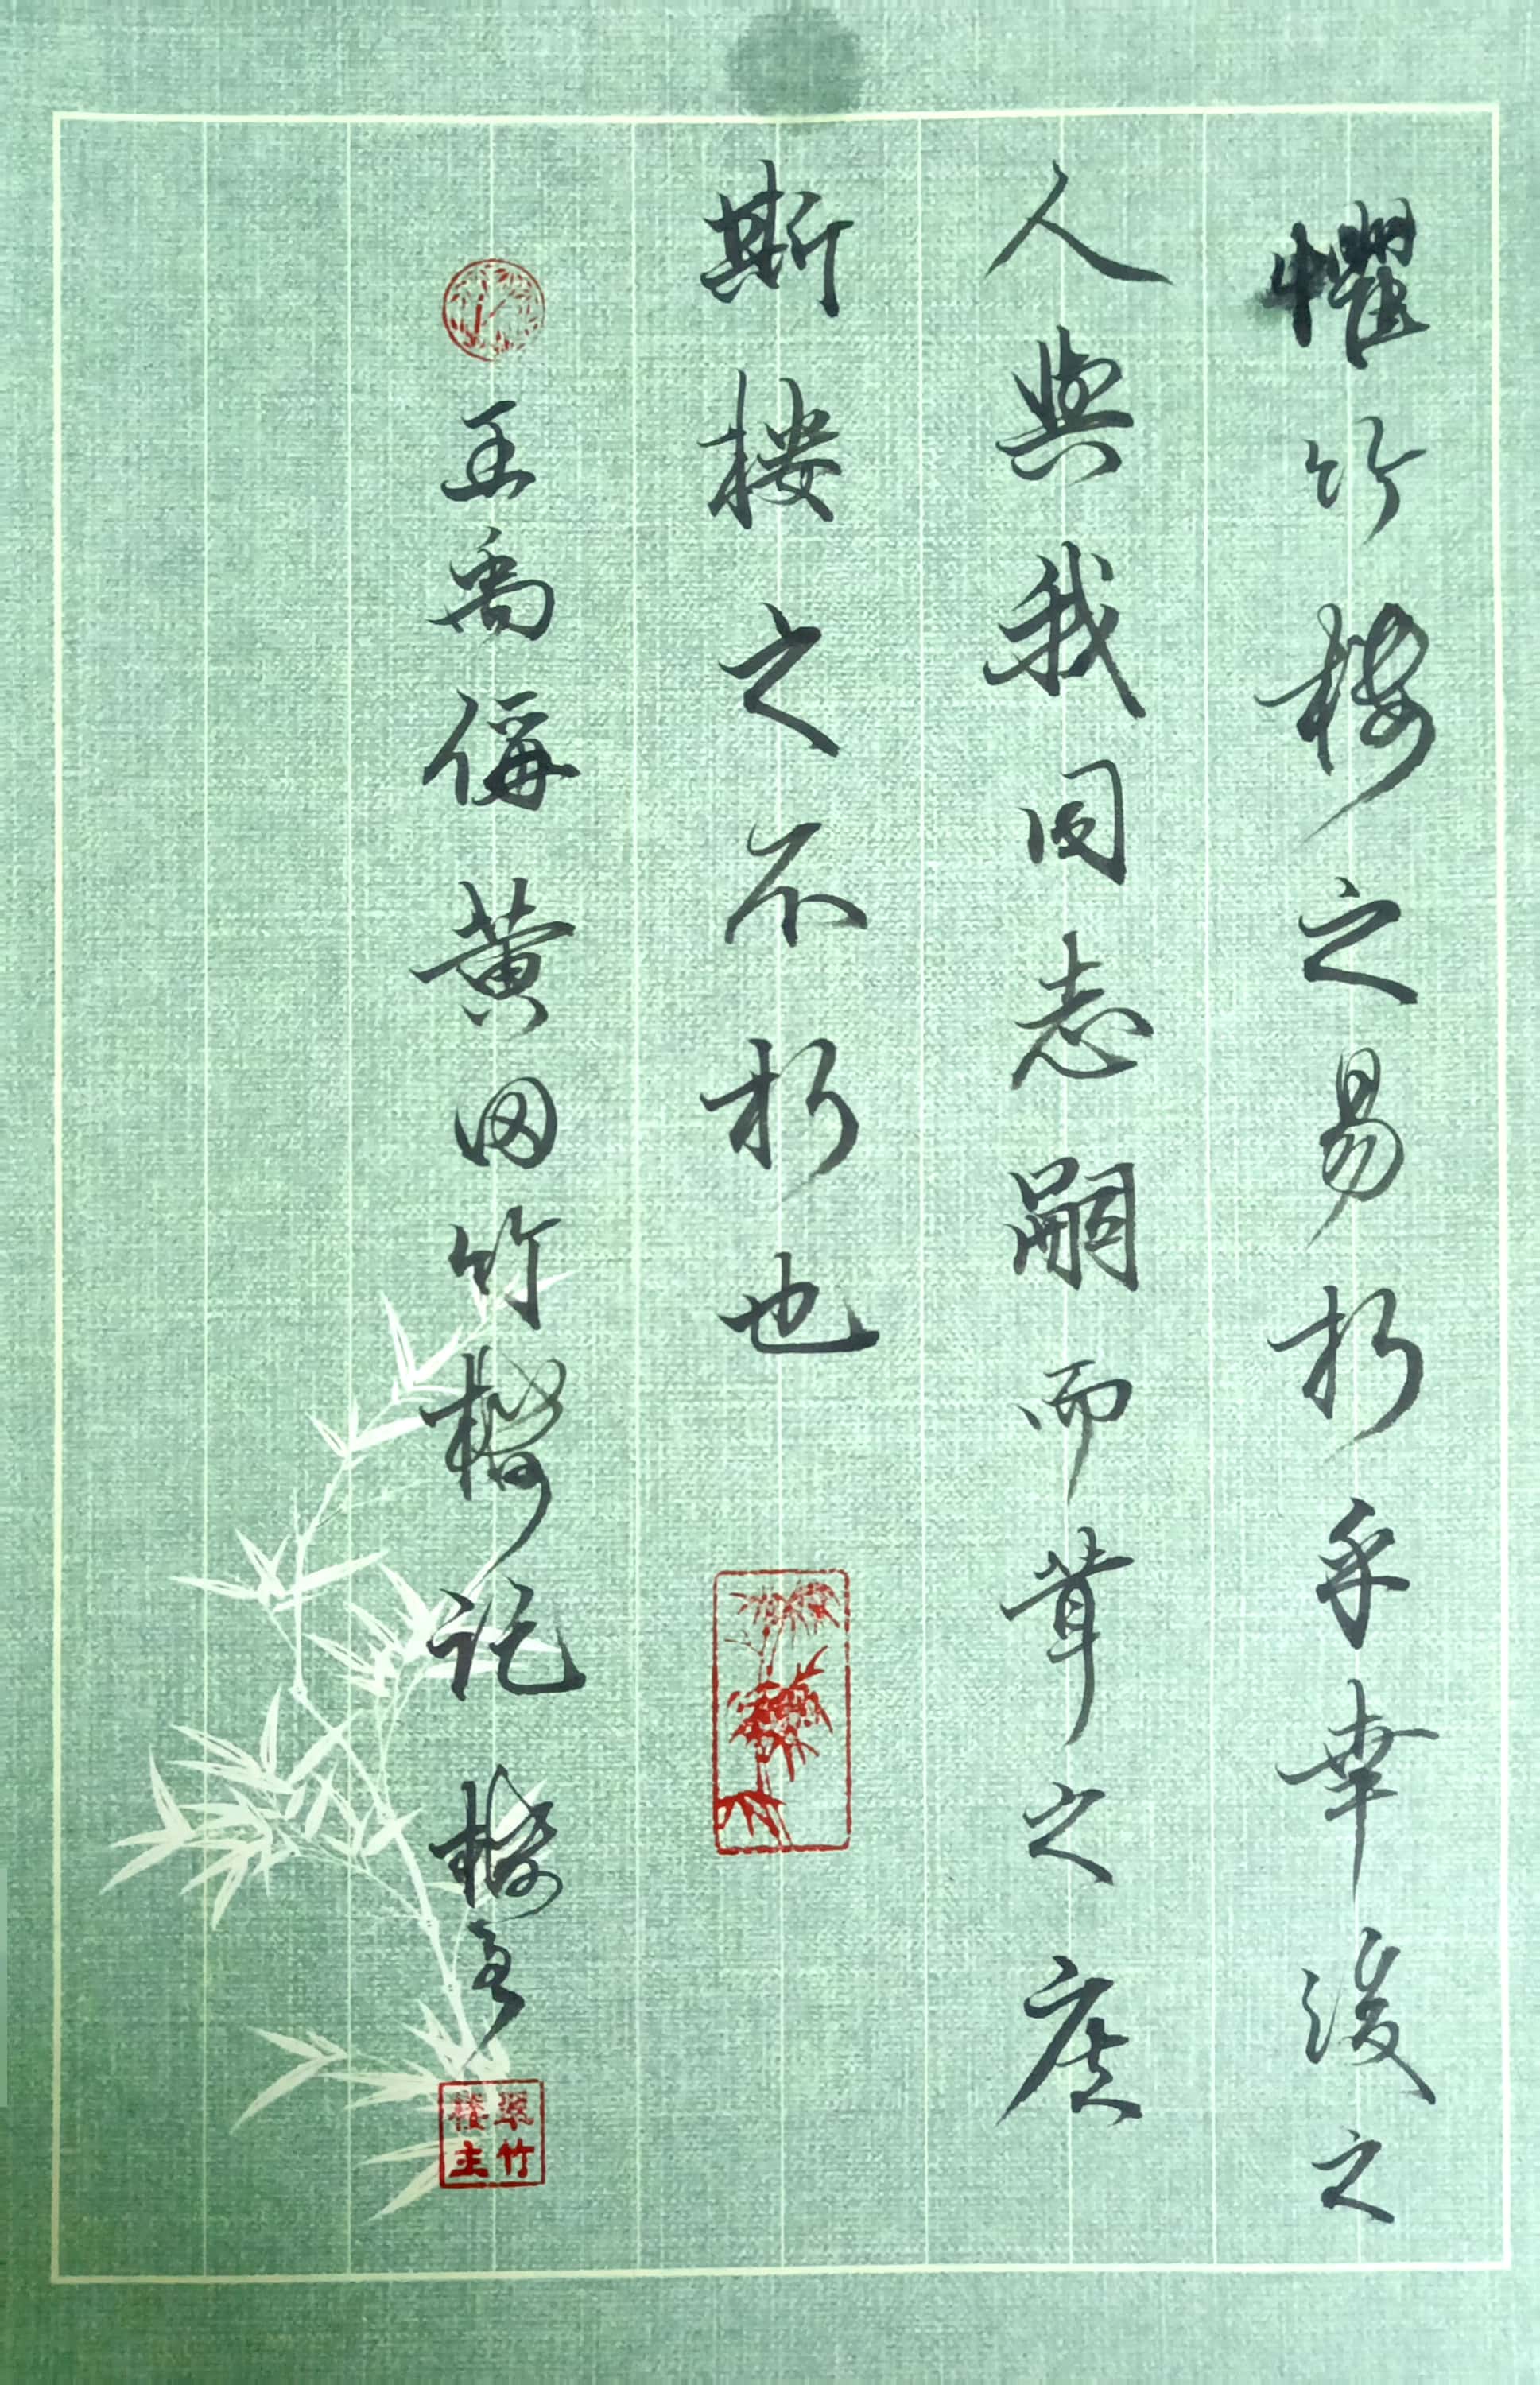 懼竹楼之易朽乎幸後之
人與我同志嗣而葺之庶
斯楼之不朽也
王禹偁黄冈竹楼记 楼主
翠竹楼主